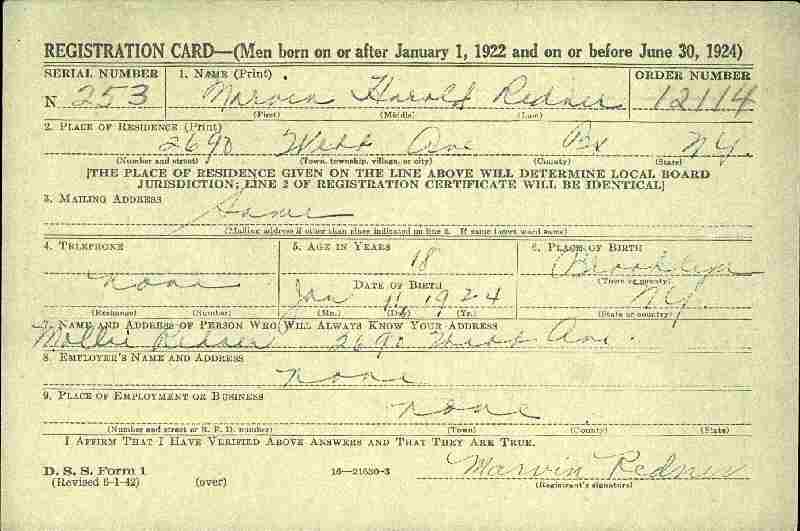 REGISTRATION CARD—(Men born on or after January 1, 1922 and on or before June 30, 1924)
SERIAL NUMBER 1. NAME (Print) ORDER NUMBER
N 253 Marvin Harold Redner 12114
(First) (Middle) (Last)
2. PLACE OF RESIDENCE (Print)
2690 Webb Ave Bx NY.
(Number and street) (Town, township, village, or city) (County) (State)
[THE PLACE OF RESIDENCE GIVEN ON THE LINE ABOVE WILL DETERMINE LOCAL BOARD
JURISDICTION; LINE 2 OF REGISTRATION CERTIFICATE WILL BE IDENTICAL]
3. MAILING ADDRESS
Same
(Mailing address if other than place indicated on line 2. If same insert word same)
4. TELEPHONE 5. AGE IN YEARS 6. PLACE OF BIRTH
18 Brooklyn
none DATE OF BIRTH (Town or county)
Jan 11, 1924 NY.
(Exchange) (Number) (Mo.) (Day) (Yr.) (State or country)
7. NAME AND ADDRESS OF PERSON WHO WILL ALWAYS KNOW YOUR ADDRESS
Mollie Redner 2690 Webb Ave.
8. EMPLOYER'S NAME AND ADDRESS
none
9. PLACE OF EMPLOYMENT OR BUSINESS
none
(Number and street or R. F. D. number) (Town) (County) (State)
I AFFIRM THAT I HAVE VERIFIED ABOVE ANSWERS AND THAT THEY ARE TRUE.
D. S. S. Form 1
(Revised 6-1-42) (over) 16—21630-3 Marvin Redner
(Registrant's signature)